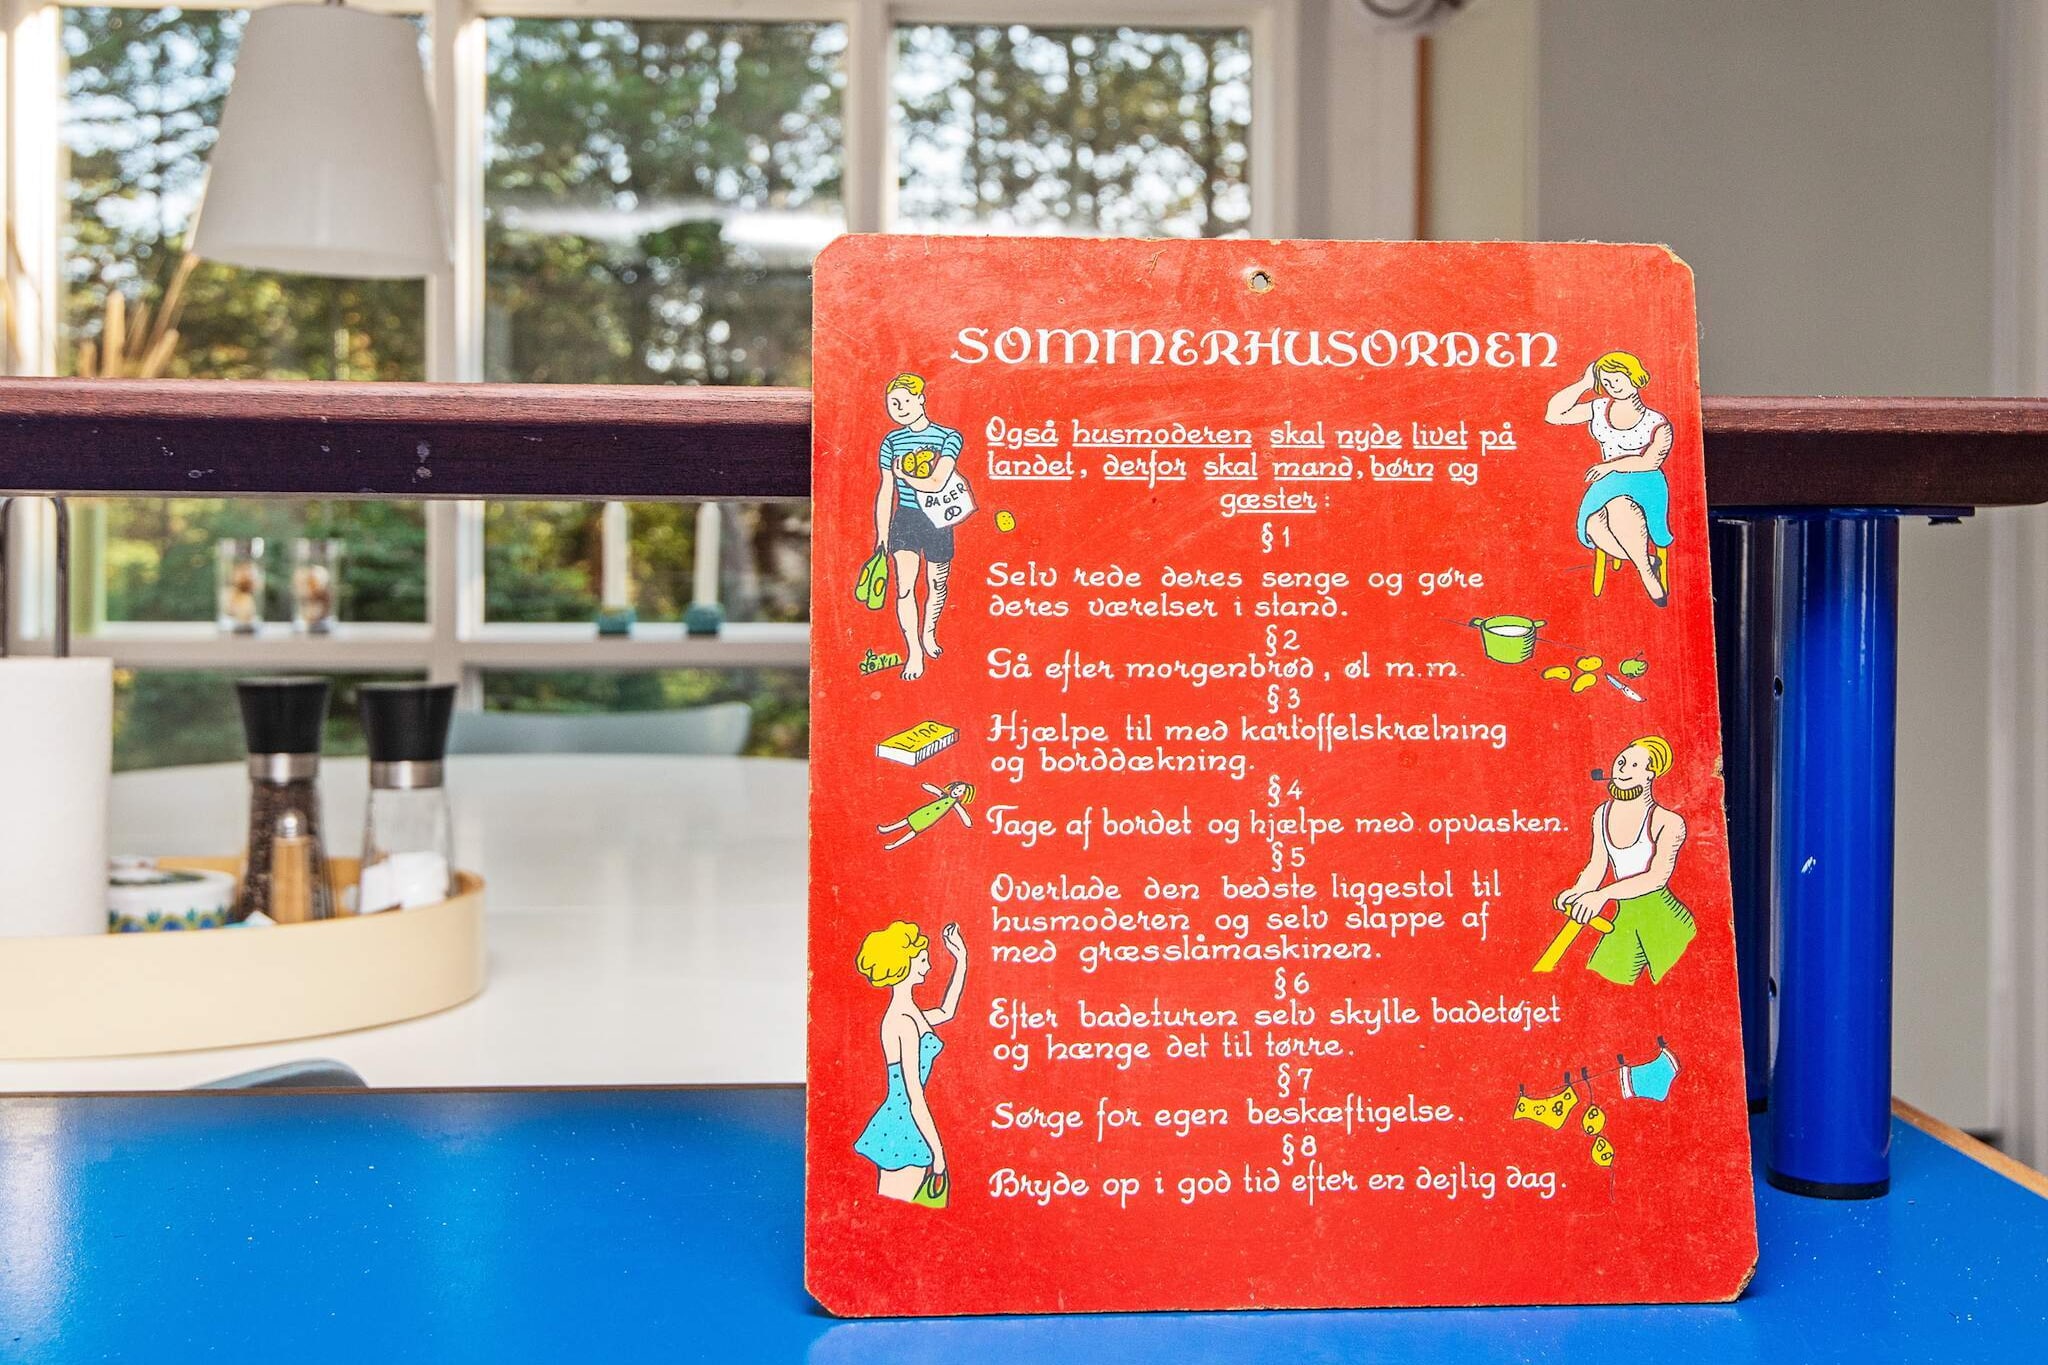 SOMMERHUSORDEN
Også husmoderen skal nyde livet på
landet, derfor skal mand, børn og
gæster:
§ 1
Selv rede deres senge og gøre
deres værelser i stand.
§ 2
Gå efter morgenbrød, øl m.m.
§ 3
Hjælpe til med kartoffelskrælning
og borddækning.
§ 4
Tage af bordet og hjælpe med opvasken.
§ 5
Overlade den bedste liggestol til
husmoderen og selv slappe af
med græsslåmaskinen.
§ 6
Efter badeturen selv skylle badetøjet
og hænge det til tørre.
§ 7
Sørge for egen beskæftigelse.
§ 8
Bryde op i god tid efter en dejlig dag.
BAGER
LUDO